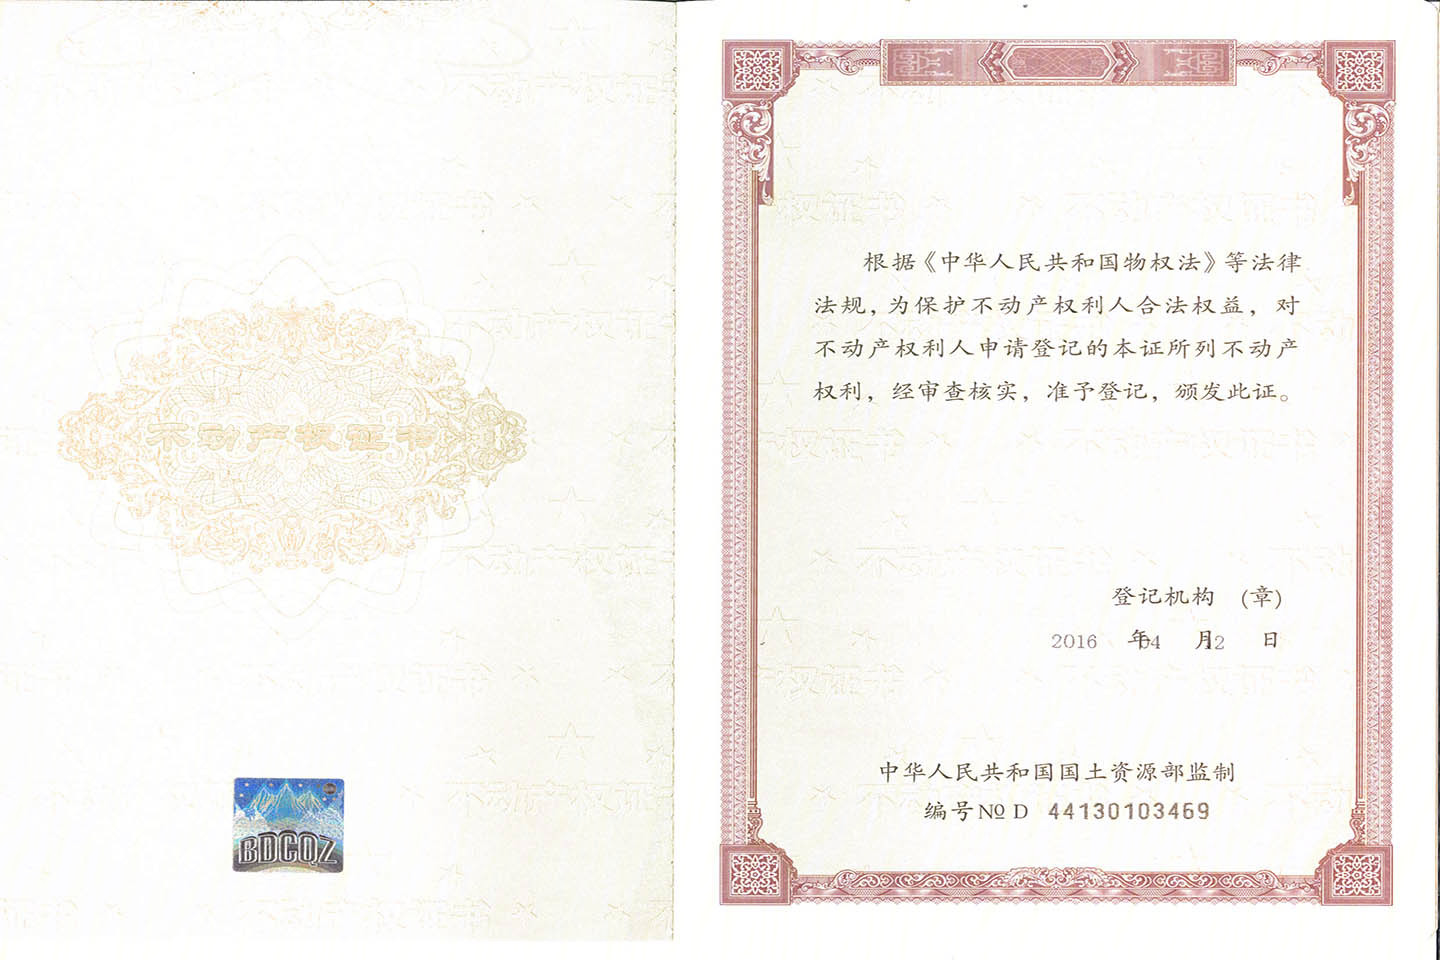 不动产权证书
BDCQZ
根据《中华人民共和国物权法》等法律
法规，为保护不动产权利人合法权益，对
不动产权利人申请登记的本证所列不动产
权利，经审查核实，准予登记，颁发此证。
登记机构 (章)
2016 年04 月12 日
中华人民共和国国土资源部监制
编号 № D 44130103469